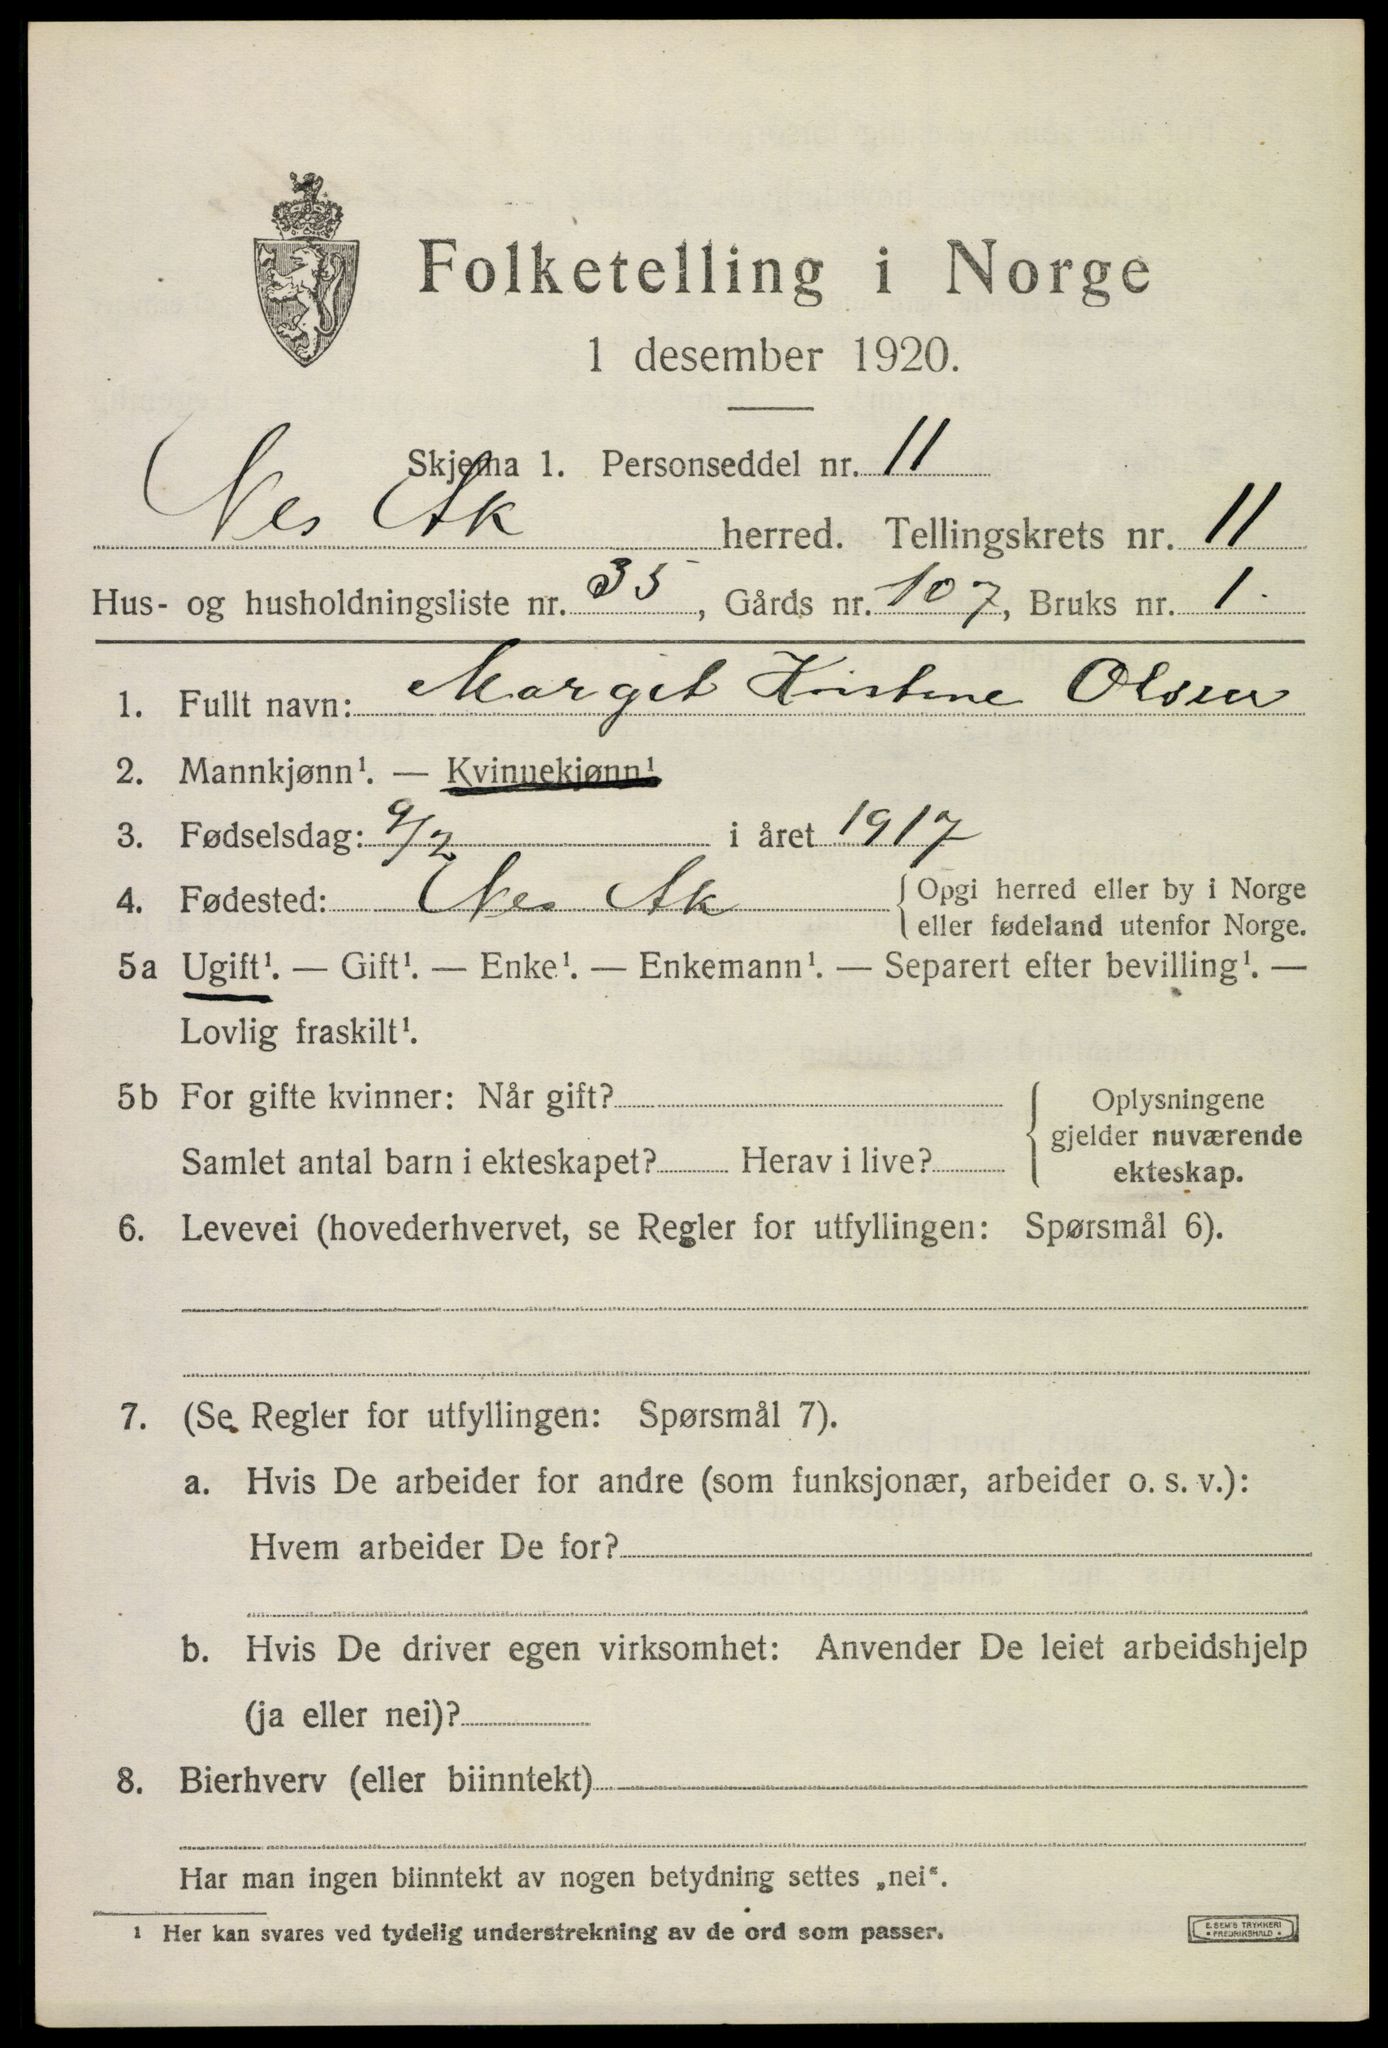 Folketelling i Norge
1 desember 1920.
Skjema 1. Personseddel nr. 11
Nes Ak herred. Tellingskrets nr. 11
Hus- og husholdningsliste nr. 35, Gårds nr. 107, Bruks nr. 1.
1. Fullt navn: Margit Kristine Olsen
2. Mannkjønn¹. — Kvinnekjønn¹
3. Fødselsdag: 9/2 i året 1917
4. Fødested: Nes Ak { Opgi herred eller by i Norge
eller fødeland utenfor Norge.
5a Ugift¹. — Gift¹. — Enke¹. — Enkemann¹. — Separert efter bevilling¹. —
Lovlig fraskilt¹.
5b For gifte kvinner: Når gift?
Samlet antal barn i ekteskapet? Herav i live?
Oplysningene
gjelder nuværende
ekteskap.
6. Levevei (hovederhvervet, se Regler for utfyllingen: Spørsmål 6).
7. (Se Regler for utfyllingen: Spørsmål 7).
a. Hvis De arbeider for andre (som funksjonær, arbeider o. s. v.):
Hvem arbeider De for?
b. Hvis De driver egen virksomhet: Anvender De leiet arbeidshjelp
(ja eller nei)?
8. Bierhverv (eller biinntekt)
Har man ingen biinntekt av nogen betydning settes „nei“.
¹ Her kan svares ved tydelig understrekning av de ord som passer.
E. SEM'S TRYKKERI
• FREDRIKSHALD •